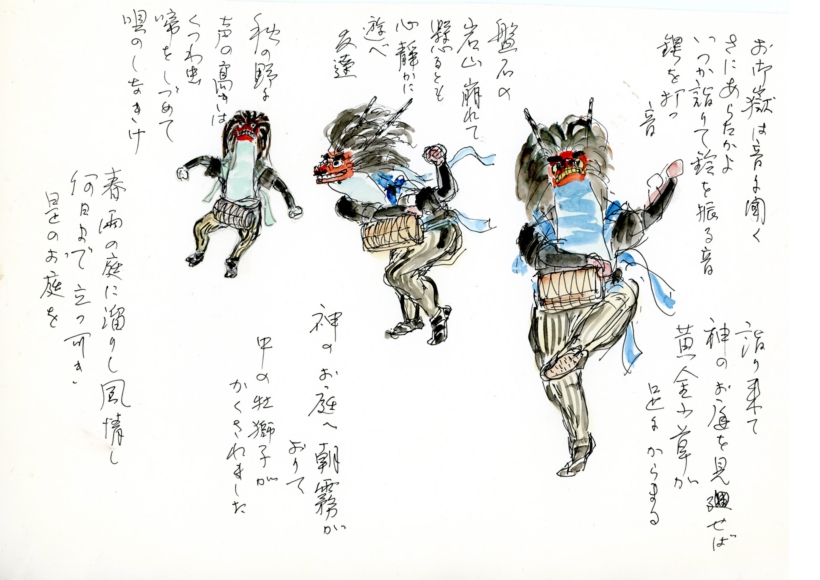 お御嶽は音に聞く
さにあらたかよ
いつか詣りて鈴を振る音
鍔を打つ
音
詣り来て
神のお庭を見廻せば
黄金小草が
足にからまる
盤石の
岩山崩れて
懸るとも
心静かに
遊べ
友達
神のお庭へ朝霧が
おりて
中の牡獅子が
かくされました
秋の野に
声の高きは
くつわ虫
啼きしづめて
唄のしなきけ
春雨の庭に溜りし風情し
何日まで立つ可き
是のお庭を